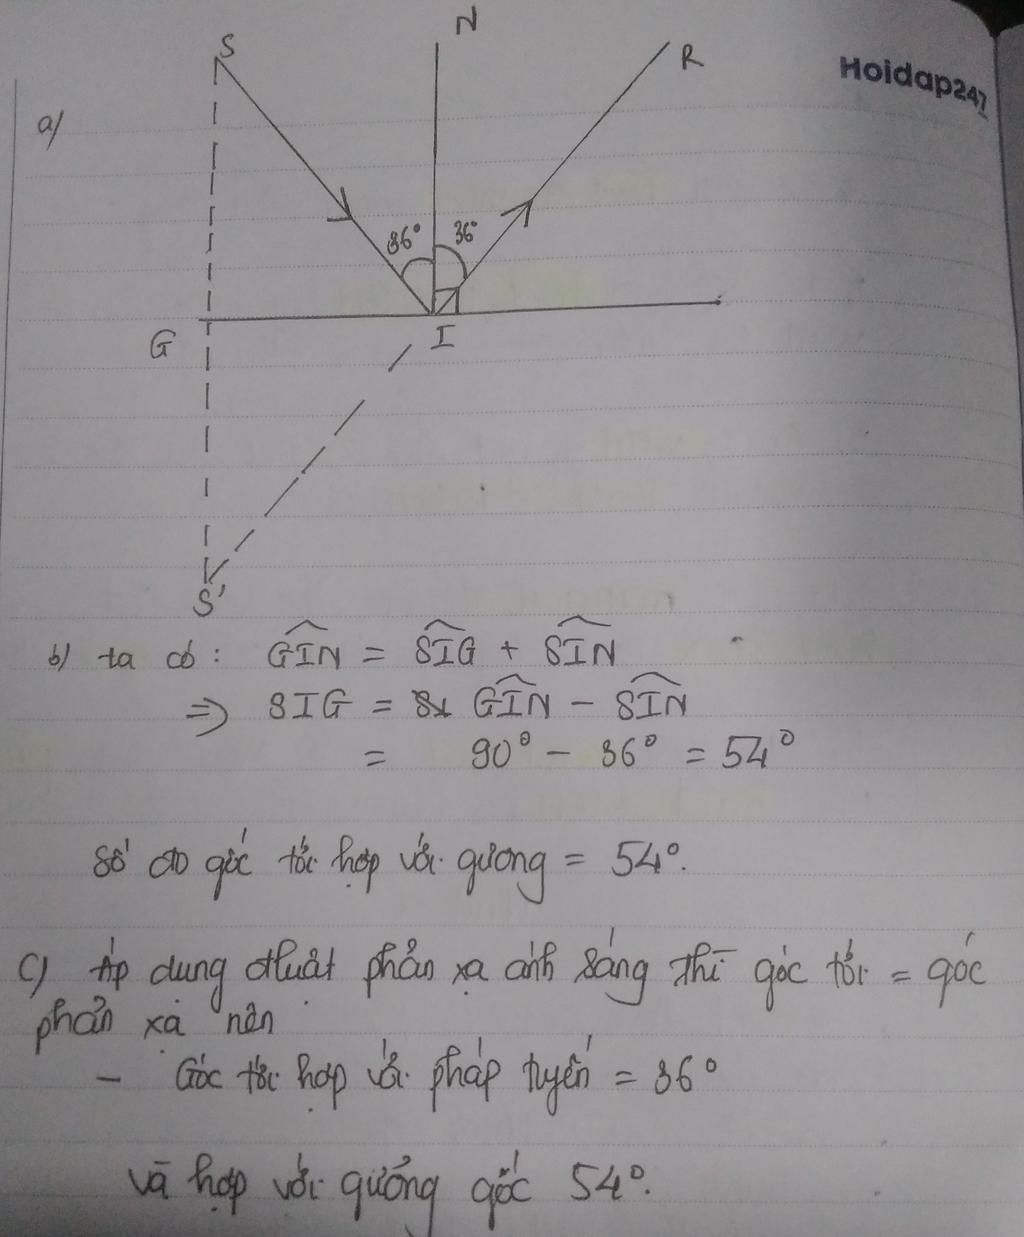 S
N
R
Hoidap247
a/
36°
36°
G
I
S'
b) ta có: GIN = SIG + SIN
=> SIG = GIN - SIN
= 90° - 36° = 54°
Số đo góc tới hợp với gương = 54°.
c) Áp dụng định luật phản xạ ánh sáng thì góc tới = góc
phản xạ nên
- Góc tới hợp với pháp tuyến = 36°
và hợp với gương góc 54°.